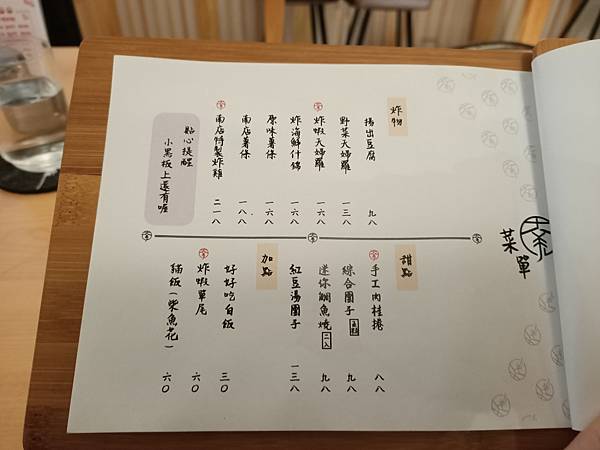 菜單
炸物
揚出豆腐 九八
野菜天婦羅 一三八
炸蝦天婦羅 一六八
炸海鮮什錦 一六八
原味薯條 一六八
南店薯條 一八八
南店特製炸雞 二一八
點心提醒
小黑板上還有喔
甜點
手工肉桂捲 八八
綜合團子 九八
迷你鯛魚燒 二入 九八
紅豆湯團子 一三八
加點
好好吃白飯 三〇
炸蝦單尾 六〇
貓飯(柴魚花) 六〇